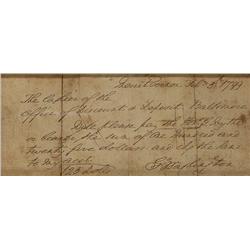 Mount Vernon Feb 3d 1799
The Cashier of the
Office of Discount & Deposit Baltimore
please pay the
or bearer the sum of one Hundred and
twenty five dollars and the same
to
125 dolls
G Washington